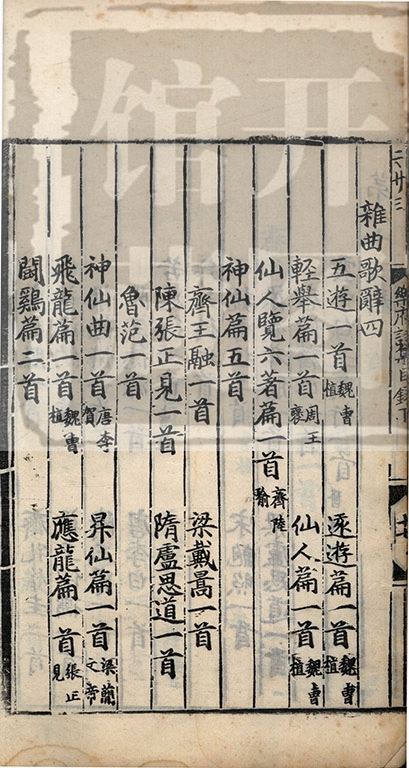 六十三
樂府詩集目錄下
十
雜曲歌辭四
五遊一首魏曹植 遠遊一首魏曹植
輕舉篇一首周王褒 仙人篇一首魏曹植
仙人覽六著篇一首齊陸瑜
神仙篇五首
齊王融一首 梁戴暠一首
陳張正見一首 隋盧思道一首
魯范一首
神仙曲一首唐李賀 昇仙篇一首梁簡文帝
飛龍篇一首魏曹植 應龍篇一首張正見
鬬鷄篇二首
开
馆